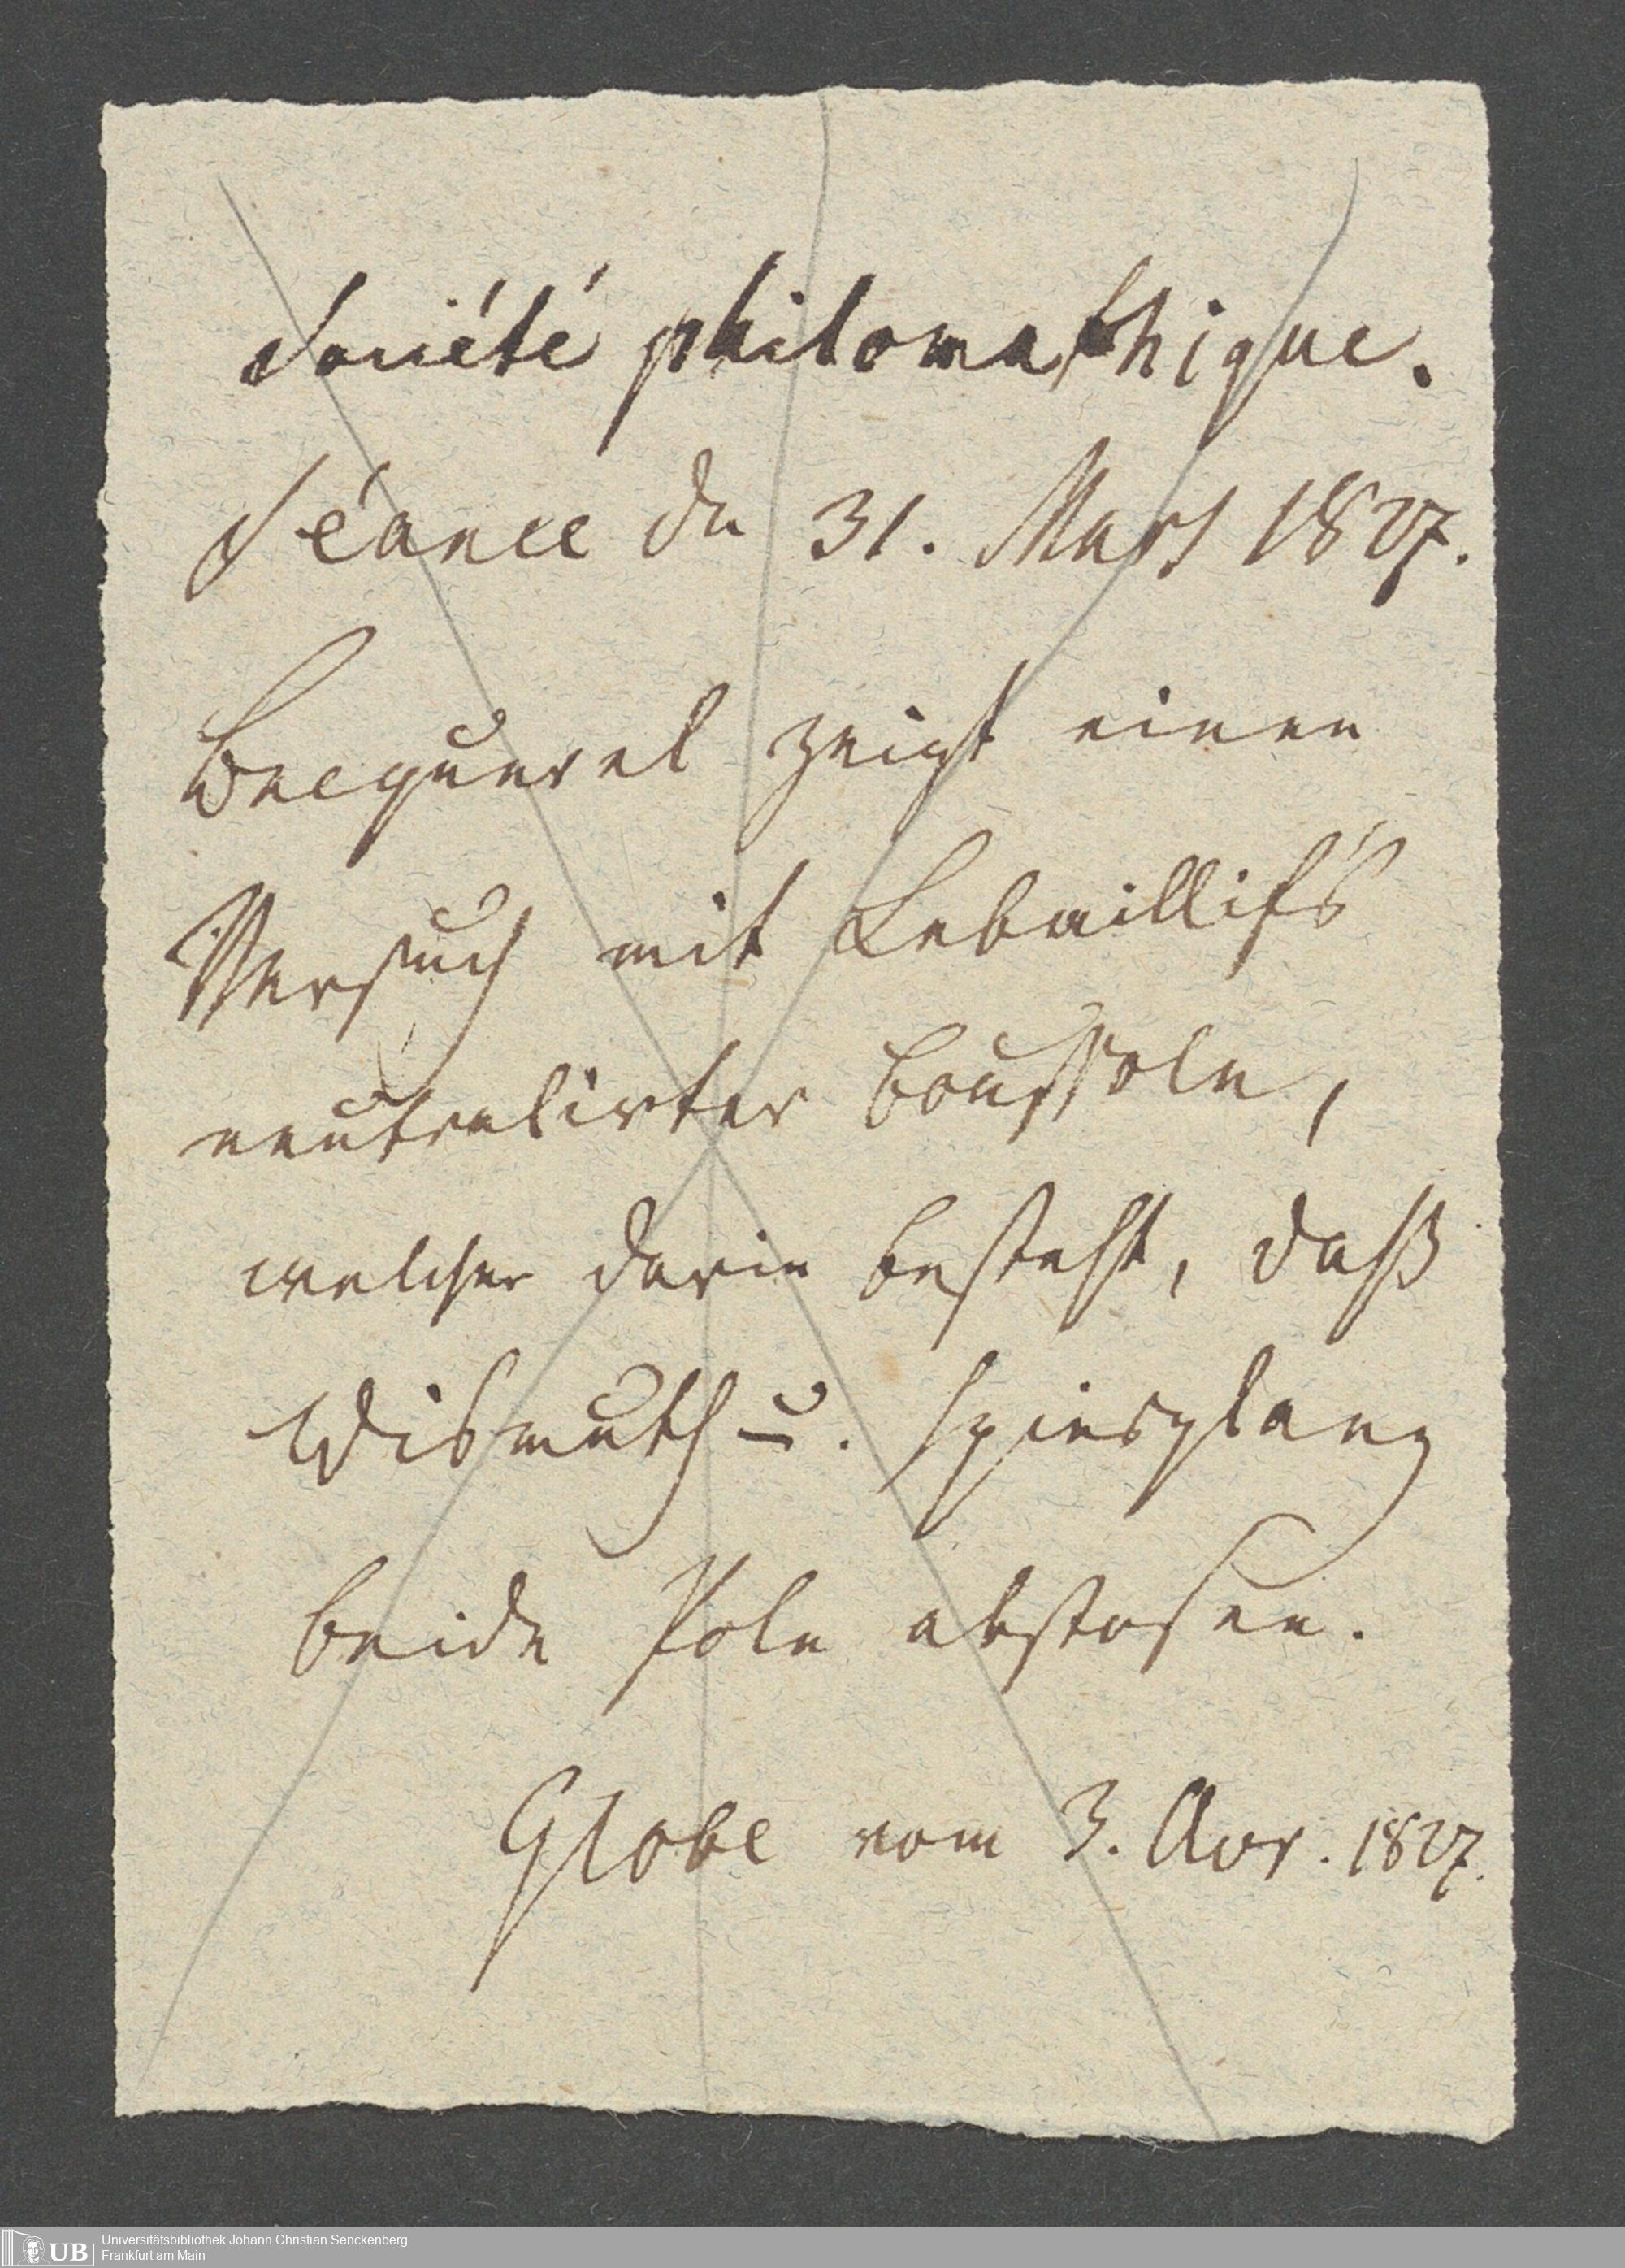 Société philomathique.
Séance du 31. Mars 1827.
Becquerel zeigt einen
Versuch mit Lebaillif's
neutralirter Boussole,
welcher darin besteht, daß
Wismuth u. Spiesglanz
beide Pole abstosen.
Globe vom 3. Avr. 1827.
UB Universitätsbibliothek Johann Christian Senckenberg
Frankfurt am Main